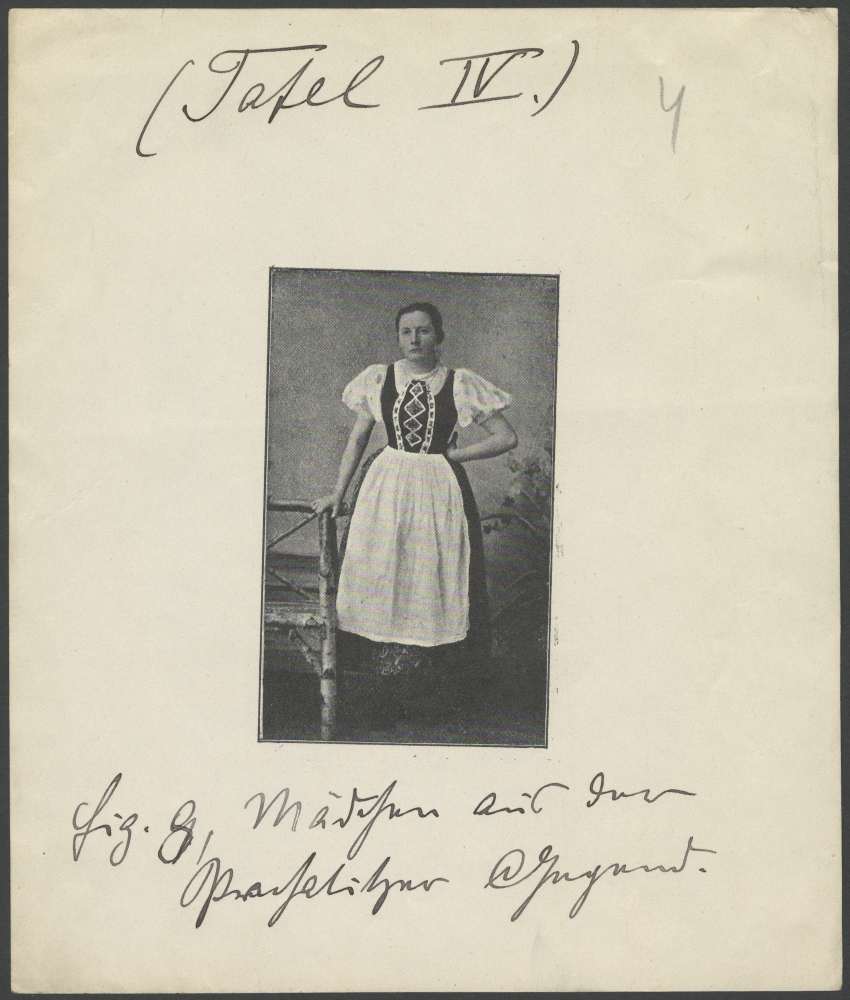 (Tafel IV.)
4
Fig. 8, Mädchen aus der
Prachatitzer Gegend.